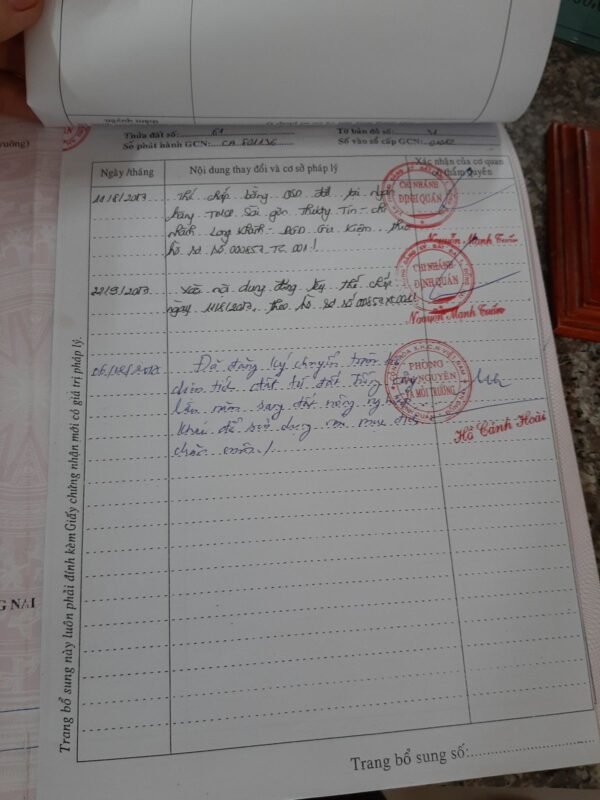 Thửa đất số: 61 Tờ bản đồ số: 31
Số phát hành GCN: CA 501136 Số vào sổ cấp GCN:
Ngày /tháng
Nội dung thay đổi và cơ sở pháp lý
Xác nhận của cơ quan
có thẩm quyền
Thế chấp bằng QSD đất tại ngân
hàng TMCP Sài gòn Thương Tín - chi
nhánh Long Khánh - PGD Gia Kiệm, theo
hồ sơ số 000857.TC.001
CHI NHÁNH
ĐỊNH QUÁN
Nguyễn Mạnh Tuấn
Xóa nội dung đăng ký thế chấp
ngày theo hồ sơ số
CHI NHÁNH
ĐỊNH QUÁN
Nguyễn Mạnh Tuấn
Đã đăng ký chuyển
diện tích đất từ đất trồng cây
lâu năm sang đất nông nghiệp
khác để sử dụng vào mục đích
chăn nuôi./.
PHÒNG
TÀI NGUYÊN
VÀ MÔI TRƯỜNG
Hồ Cảnh Hoài
Trang bổ sung này luôn phải đính kèm Giấy chứng nhận mới có giá trị pháp lý.
G NAI
Trang bổ sung số: